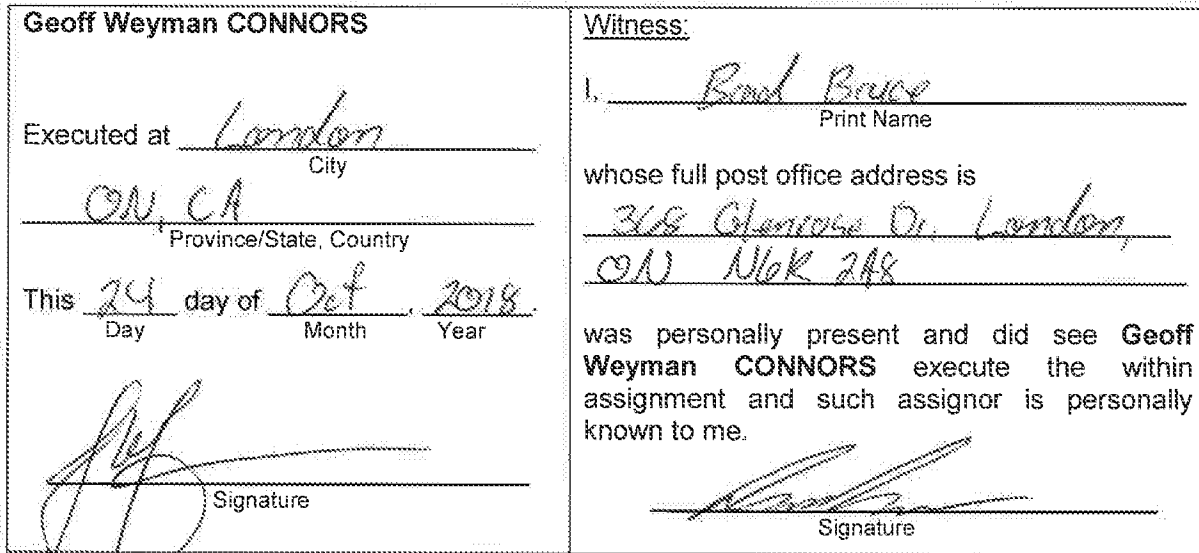 Geoff Weyman CONNORS
Executed at London
City
ON, CA
Province/State, Country
This 24 day of Oct, 2018.
Day Month Year
Signature
Witness:
I, Brad Bruce
Print Name
whose full post office address is
368 Glenrose Dr. London,
ON N6K 2A8
was personally present and did see Geoff
Weyman CONNORS execute the within
assignment and such assignor is personally
known to me.
Signature